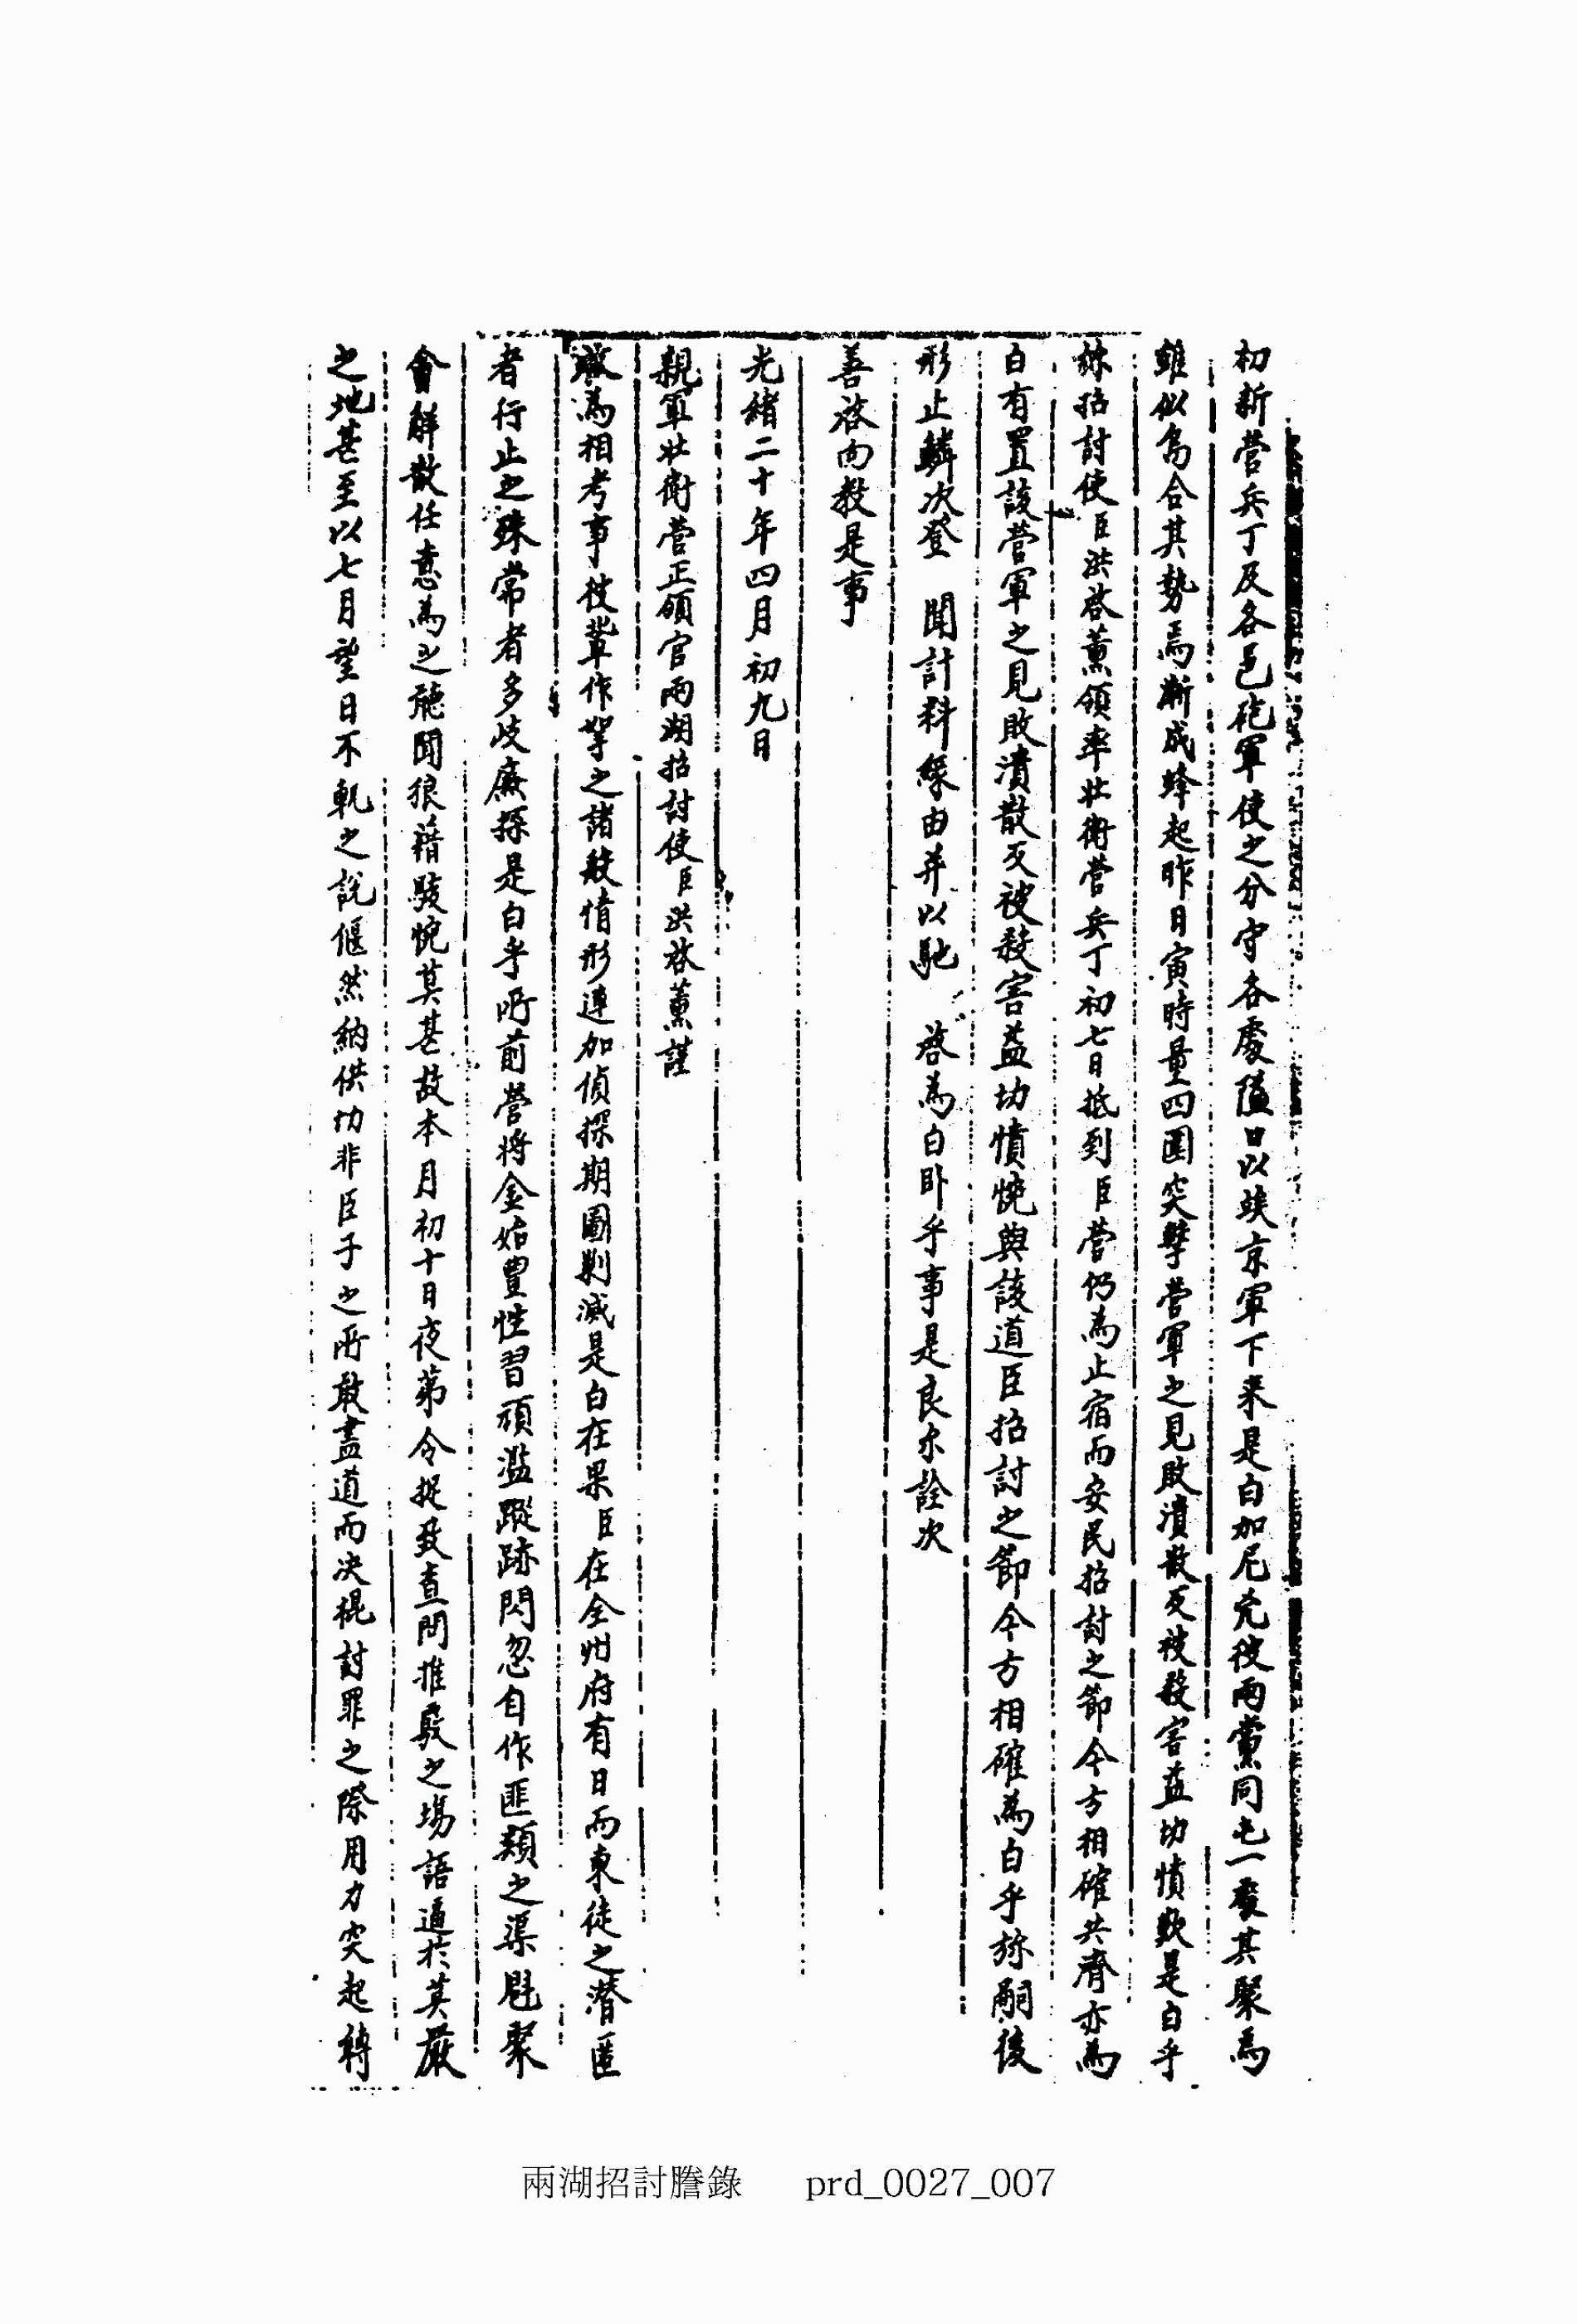 初新營兵丁及各邑砲軍使之分守各處隘口以竢京軍下來是白加尼究彼兩黨同屯一處其聚焉
雖似烏合其勢焉漸成蜂起昨日寅時量四圍突擊營軍之見敗潰散反被殺害益切憤歎是白乎
旀招討使臣洪啓薰領率壯衛營兵丁初七日抵到臣營仍爲止宿而安民招討之節今方相確共濟亦爲
白有置該營軍之見敗潰散反被殺害益切憤惋與該道臣招討之節今方相確爲白乎旀嗣後
形止鱗次登 聞計料緣由并以馳 啓爲白卧乎事是良尒詮次
善啓向敎是事
光緖二十年四月初九日
親軍壯衛營正領官兩湖招討使臣洪啓薰謹
啟爲相考事彼輩作拏之諸般情形連加偵探期圖剿滅是白在果臣在全州府有日而東徒之潛匿
者行止之殊常者多岐廉探是白乎所前營將金始豊性習頑濫蹤跡閃忽自作匪類之渠魁聚
會解散任意爲之聽聞狼藉駭惋莫甚故本月初十日夜第令捉致査問推覈之場語逼於莫嚴
之地甚至以七月望日不軌之說偃然納供切非臣子之所敢盡道而決棍討罪之際用力突起轉
兩湖招討謄錄 prd_0027_007